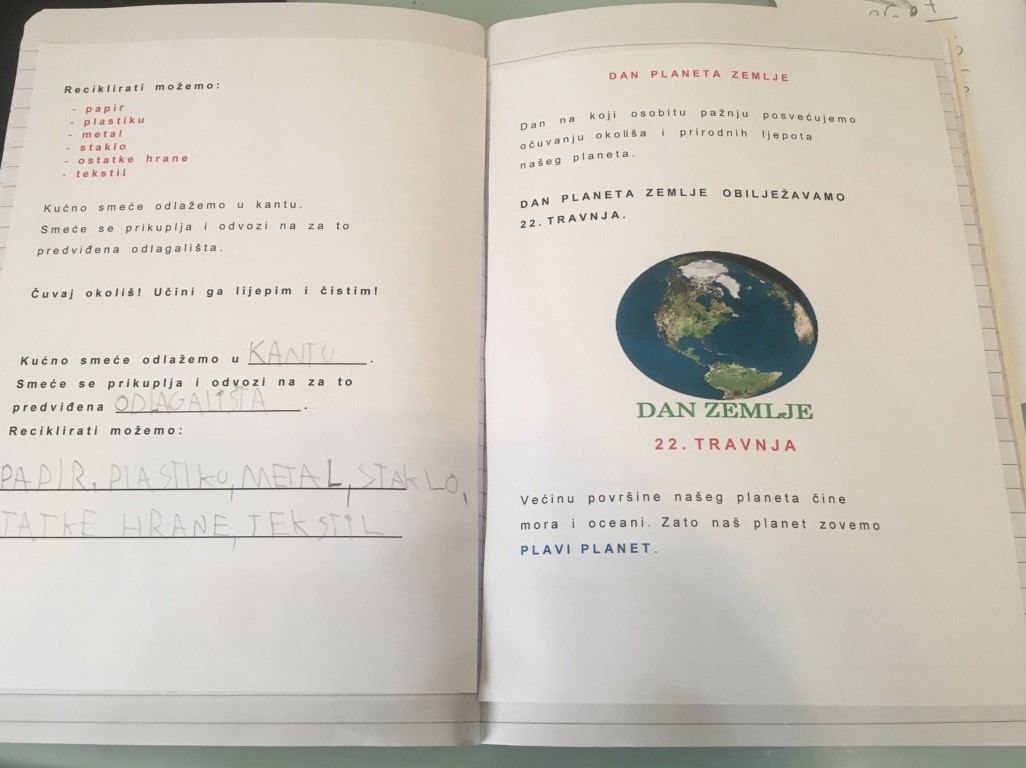 Reciklirati možemo:
- papir
- plastiku
- metal
- staklo
- ostatke hrane
- tekstil
Kućno smeće odlažemo u kantu.
Smeće se prikuplja i odvozi na za to
predviđena odlagališta.
Čuvaj okoliš! Učini ga lijepim i čistim!
Kućno smeće odlažemo u KANTU.
Smeće se prikuplja i odvozi na za to
predviđena ODLAGALIŠTA.
Reciklirati možemo:
PAPIR, PLASTIKU, METAL, STAKLO,
TATKE HRANE, TEKSTIL
DAN PLANETA ZEMLJE
Dan na koji osobitu pažnju posvećujemo
očuvanju okoliša i prirodnih ljepota
našeg planeta.
DAN PLANETA ZEMLJE OBILJEŽAVAMO
22. TRAVNJA.
DAN ZEMLJE
22. TRAVNJA
Većinu površine našeg planeta čine
mora i oceani. Zato naš planet zovemo
PLAVI PLANET.